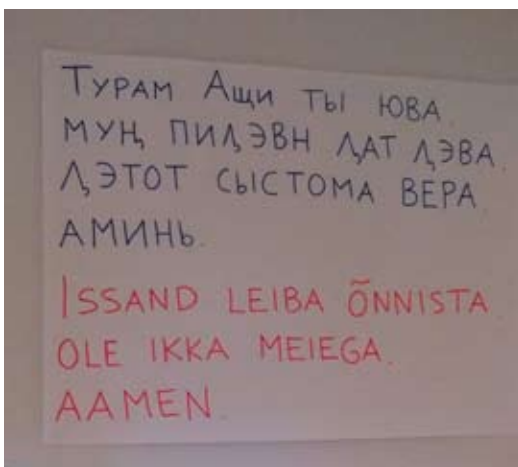 Турам Ащи ты юва
муң пиԓэвн ԓат ԓэва.
Ԓэтот сыстома вера.
аминь.
Issand leiba õnnista
ole ikka meiega.
aamen.